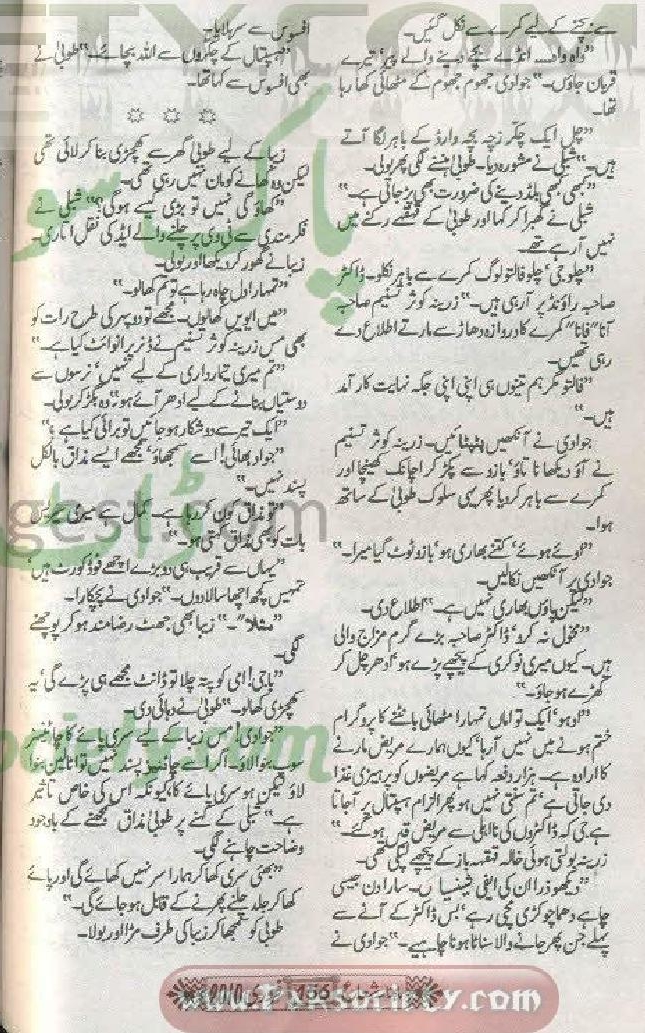 سے بچنے کے لیے کمرے سے نکل گئیں۔
”واہ واہ۔۔۔ انڈے بچے دینے والے پیڑ تیرے
قربان جاؤں۔“ جوادی جھوم جھوم کے مٹھائی کھا رہا
تھا۔
”چل ایک چکر زچہ بچہ وارڈ کے باہر لگا آتے
ہیں۔“ شبلی نے مشورہ دیا۔ طوبیٰ ہنسنے لگی پھر بولی۔
”کبھی کبھی بلڈ دینے کی ضرورت بھی پڑ جاتی ہے۔“
شبلی نے گھبرا کر کہا اور طوبیٰ کے قہقہے رکنے میں
نہیں آ رہے تھے۔
”چلو جی، چلو فالتو لوگ کمرے سے باہر نکلو۔ ڈاکٹر
صاحبہ راؤنڈ پر آ رہی ہیں۔“ زرینہ کوثر تسنیم صاحبہ
آنا“ فانا“ کمرے کا دروازہ دھاڑ سے مارتے اطلاع دے
رہی تھیں۔
”فالتو مگر ہم تینوں ہی اپنی اپنی جگہ نہایت کار آمد
ہیں۔“
جوادی نے آنکھیں پٹپٹائیں۔ زرینہ کوثر تسنیم
نے آؤ دیکھا نا تاؤ، بازو سے پکڑ کر اچانک کھینچا اور
کمرے سے باہر کر دیا پھر یہی سلوک طوبیٰ کے ساتھ
ہوا۔
”اوئے ہوئے، کتنے بھاری ہو، بازو ٹوٹ گیا میرا۔“
جوادی پر آنکھیں نکالیں۔
”لیکن پاؤں بھاری نہیں ہے۔“ اطلاع دی۔
”مخول نہ کرو، ڈاکٹر صاحبہ بڑے گرم مزاج والی
ہیں۔ کیوں میری نوکری کے پیچھے پڑے ہو، ادھر چل کر
کھڑے ہو جاؤ۔“
”اوہو، ایک تو اماں تمہارا مٹھائی بانٹنے کا پروگرام
ختم ہونے میں نہیں آ رہا، کیوں ہمارے مریض مارنے
کا ارادہ ہے۔ ہزار دفعہ کہا ہے مریضوں کو پرہیزی غذا
دی جاتی ہے، تم سنتی نہیں ہو پھر الزام ہسپتال پر آ جاتا
ہے کہ ڈاکٹروں کی نااہلی سے مریض قبر ہو گئے۔“
زرینہ بولتی ہوئی خالہ قہقہہ باز کے پیچھے لپکی تھی۔
”دیکھو ذرا ان کی سارا دن جیسی
چاہے دھما چوکڑی مچی رہے، بس ڈاکٹر کے آنے سے
پہلے جن پھر جانے والا سناٹا ہونا چاہیے۔“ جوادی نے
افسوس سے سر ہلایا۔
”ہسپتال کے چکروں سے اللہ بچائے۔“ طوبیٰ نے
بھی افسوس سے کہا تھا۔
زیبا کے لیے طوبیٰ گھر سے کھچڑی بنا کر لائی تھی
لیکن وہ کھانے کو مان نہیں رہی تھی۔
”کھاؤ گی نہیں تو بڑی کیسے ہو گی؟“ شبلی نے
فکر مندی سے ٹی وی پر چلنے والے ایڈ کی نقل اتاری۔
زیبا نے گھور کر دیکھا اور بولی۔
”تمہارا دل چاہ رہا ہے تو تم کھا لو۔“
”میں ایویں کھا لوں۔ مجھے تو دوپہر کی طرح رات کو
بھی مس زرینہ کوثر تسنیم نے ڈنر پر انوائٹ کیا ہے۔“
”تم میری تیمارداری کے لیے نہیں، نرسوں سے
دوستیاں بنانے کے لیے ادھر آئے ہو۔“ وہ بگڑ کر بولی۔
”ایک تیر سے دو شکار ہو جائیں تو برائی کیا ہے؟“
”جواد بھائی! اسے سمجھاؤ، مجھے ایسے مذاق بالکل
پسند نہیں۔“
”تو مذاق کون کر رہا ہے۔ کمال ہے میری سیریس
بات کو بھی مذاق کہتی ہو۔“
”یہاں سے قریب ہی دو بڑے اچھے فوڈ کورٹ ہیں،
تمہیں کچھ اچھا سا لا دوں۔“ جوادی نے چمکارا۔
”مثلاً“۔“ زیبا بھی جھٹ رضامند ہو کر پوچھنے
لگی۔
”باجی! امی کو پتہ چلا تو ڈانٹ مجھے ہی پڑے گی، یہ
کھچڑی کھا لو۔“ طوبیٰ نے دہائی دی۔
”جوادی! مس زیبا کے لیے سری پائے کا چائنیز
سوپ بنوا لاؤ۔ اگر اسے چائنیز پسند نہیں تو اٹالین بنوا
لاؤ لیکن ہو سری پائے کا، کیونکہ اس کی خاص تاثیر
ہے۔“ شبلی کے کہنے پر طوبیٰ مذاق سمجھنے کے باوجود
وضاحت چاہنے لگی۔
”بھئی سری کھا کر ہمارا سر نہیں کھائے گی اور پائے
کھا کر جلد چلنے پھرنے کے قابل ہو جائے گی۔“
طوبیٰ کو سمجھا کر زیبا کی طرف مڑا اور بولا۔
156
www.Paksociety.com